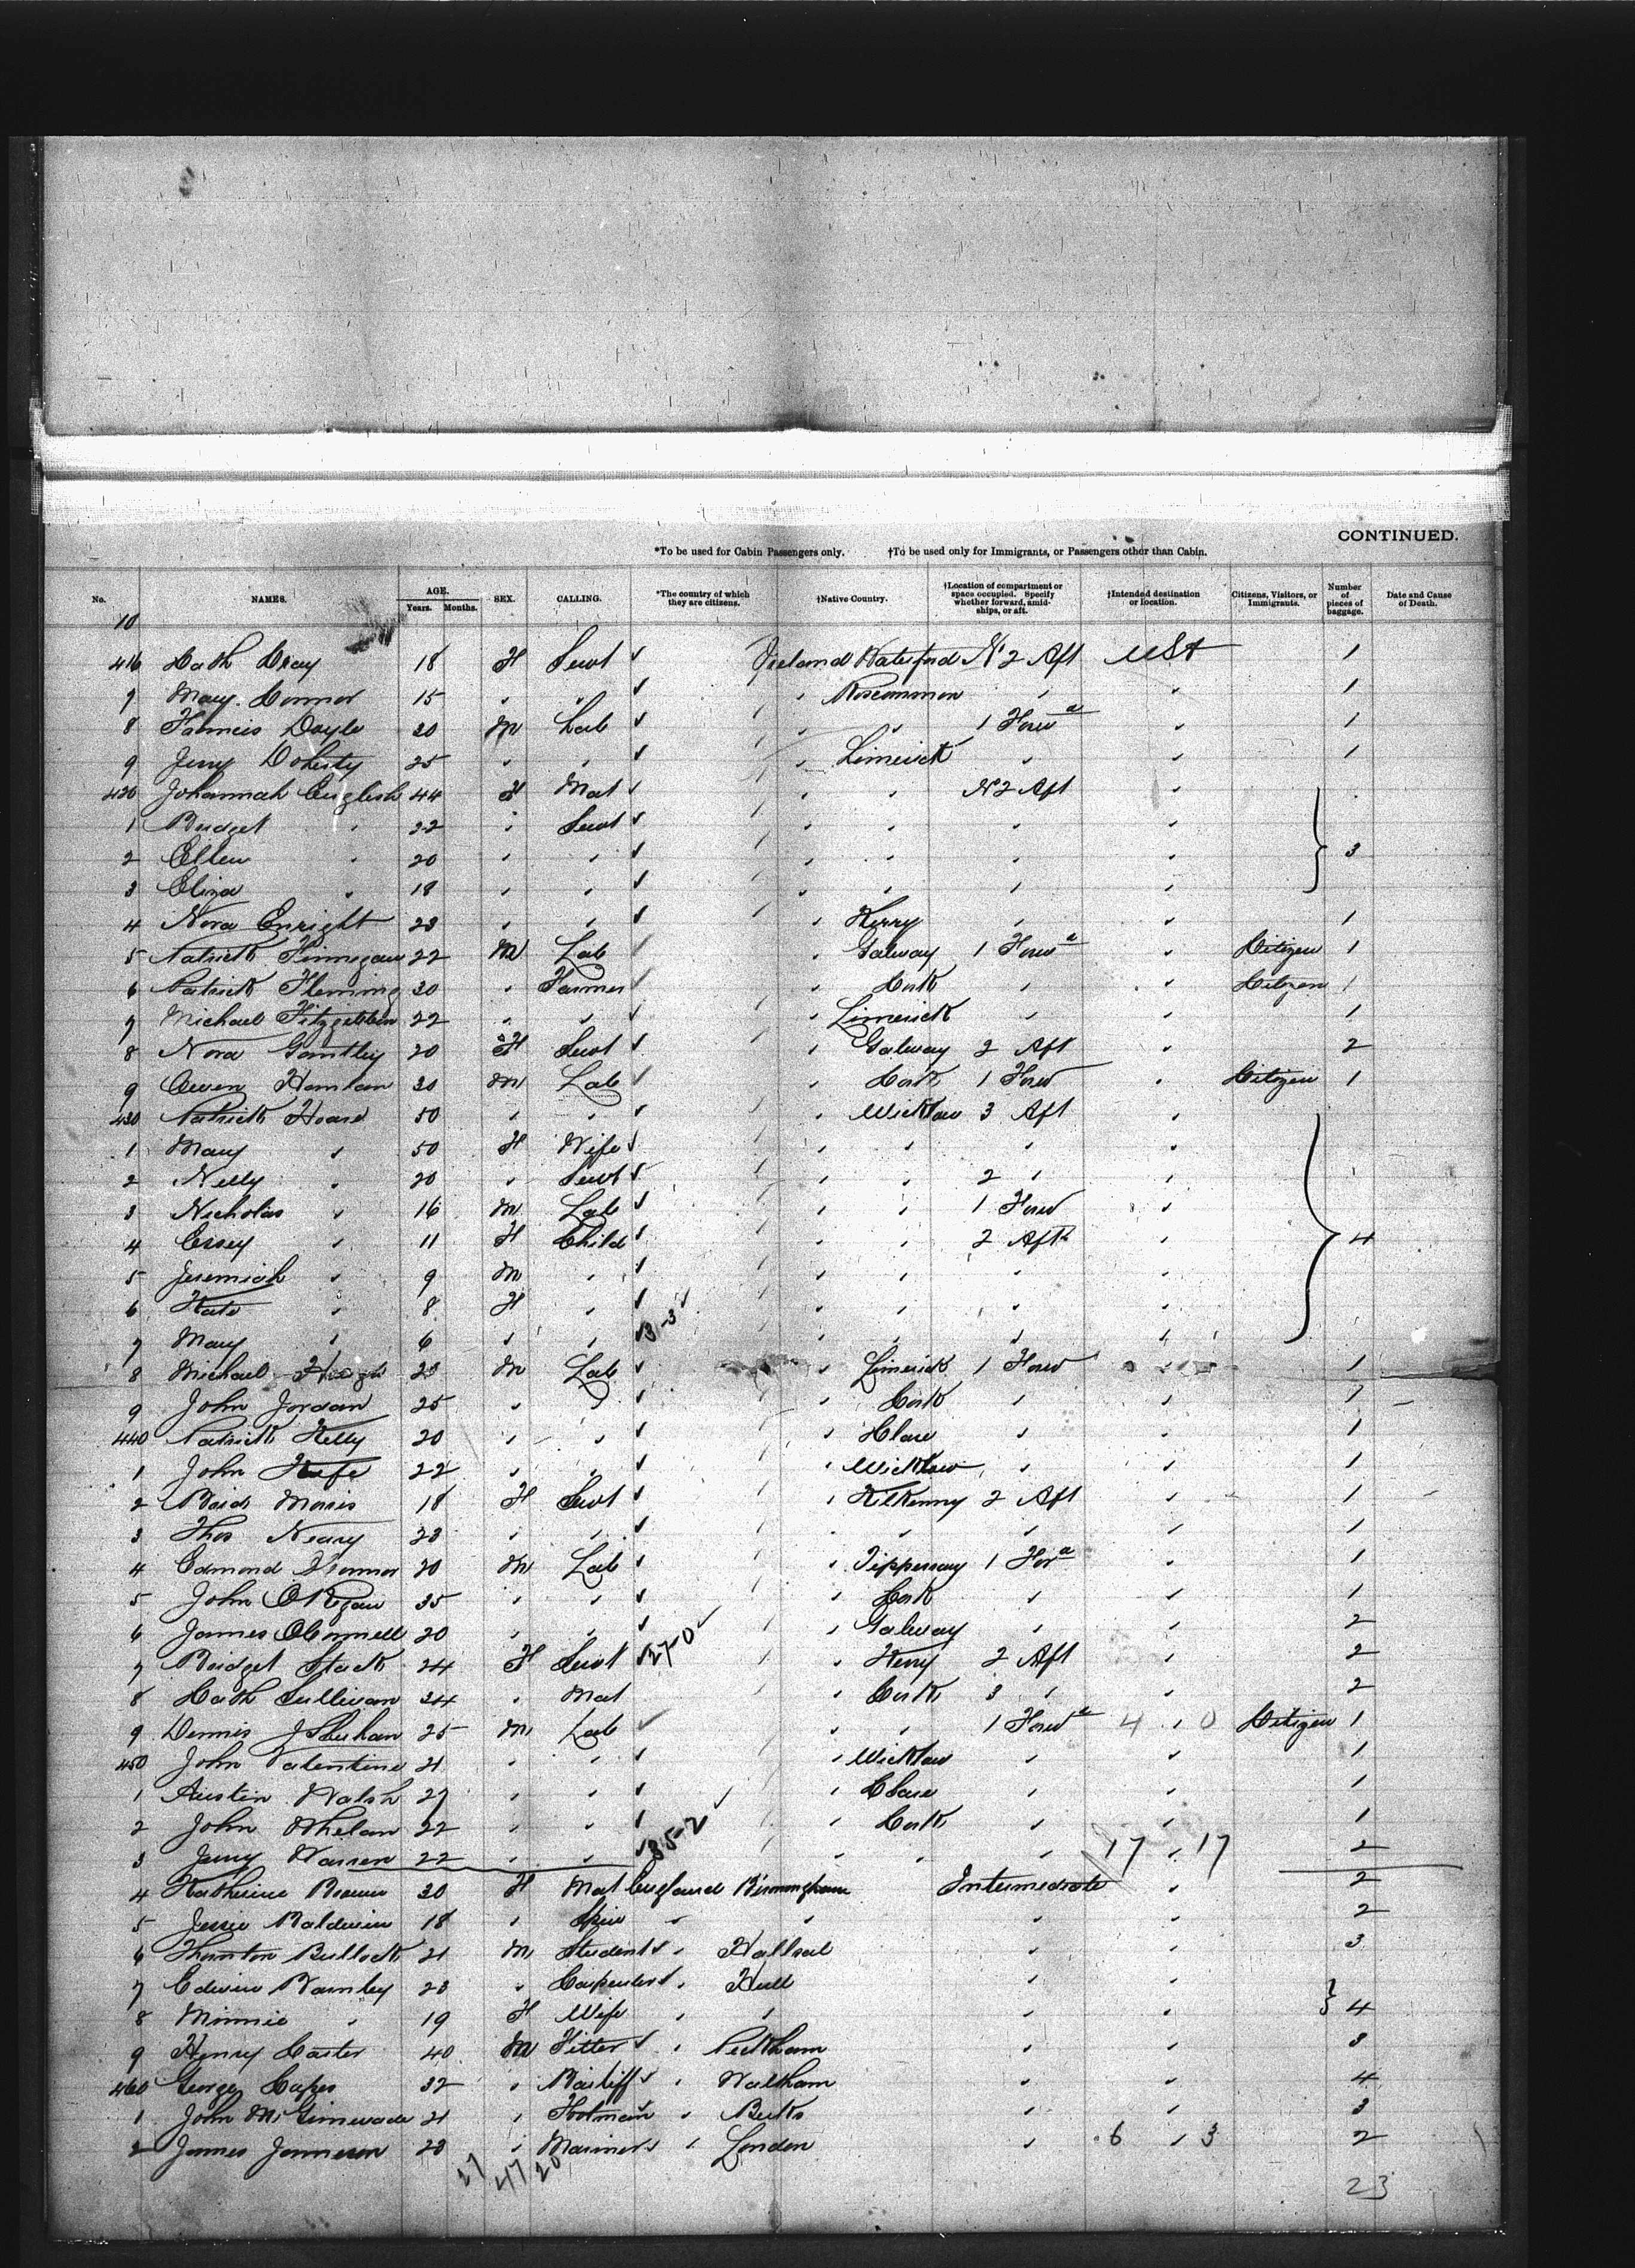 CONTINUED.
*To be used for Cabin Passengers only. †To be used only for Immigrants, or Passengers other than Cabin.
No. NAMES. AGE. Years. Months. SEX. CALLING. *The country of which they are citizens. †Native Country. †Location of compartment or space occupied. Specify whether forward, amidships, or aft. †Intended destination or location. Citizens, Visitors, or Immigrants. Number of pieces of baggage. Date and Cause of Death.
10
416 Cath 18 F Servt Ireland Waterford No 2 Aft USA 1
7 Mary Connor 15 " " " Roscommon " " 1
8 Francis Doyle 20 M Lab " " 1 Forwd " 1
9 Jerry Doherty 25 " " " Limerick " " 1
420 Johannah English 44 F Mat " " No 2 Aft "
1 Bridget " 22 " Servt " " " "
2 Ellen " 20 " " " " " " 3
3 Eliza " 18 " " " " " "
4 Nora Enright 23 " " " Kerry " " 1
5 Patrick Finnegan 22 M Lab " Galway 1 Forwd " Citizen 1
6 Patrick Fleming 30 " Farmer " Cork " " Citizen 1
7 Michael 22 " " " Limerick " " 1
8 Nora Gantley 20 F Servt " Galway 2 Aft " 2
9 Owen Hanlan 30 M Lab " Cork 1 Forwd " Citizen 1
430 Patrick Hoare 50 " " " Wicklow 3 Aft "
1 Mary " 50 F Wife " " " "
2 Nelly " 20 " Servt " " 2 " "
3 Nicholas " 16 M Lab " " 1 Forwd "
4 Essey " 11 F Child " " 2 Aft " 4
5 Jeremiah " 9 M " " " " "
6 Kate " 8 F " " " " "
7 Mary " 6 " " 31-3 " " " "
8 Michael 23 M Lab " Limerick 1 Forwd " 1
9 John Jordan 25 " " " Cork " " 1
440 Patrick Kelly 20 " " " Clare " " 1
1 John Keefe 22 " " " Wicklow " " 1
2 Morris 18 F Servt " Kilkenny 2 Aft " 1
3 Thos Neary 23 " " " " " " 1
4 Edmond 30 M Lab " Tipperary 1 For " 1
5 John O'Regan 35 " " " Cork " " 1
6 James O'Connell 20 " " " Galway " " 2
7 Bridget Stack 24 F Servt 27-0 " Kerry 2 Aft " 2
8 Cath Sullivan 34 " Mat " Cork 3 " " 2
9 Dennis J Sheehan 25 M Lab " " 1 Forwd 4 " 0 Citizen 1
450 John Valentine 21 " " " Wicklow " " 1
1 Austin Walsh 27 " " " Clare " " 1
2 John Whelan 22 " " " Cork " " 1
3 Jerry Warren 22 " " 35-2 " " " 17 " 17 2
4 Katherine Brown 30 F Mat England Birmingham Intermediate " 2
5 Jessie Baldwin 18 " Spin " " " " 2
6 Thornton Bullock 21 M Student " " " 3
7 Edwin Barnley 23 " Carpenter " Hull " "
8 Minnie " 19 F Wife " " " " 4
9 Henry Carter 40 M Fitter " Peckham " " 3
460 George Capes 32 " Bailiff " Waltham " " 4
1 John 21 " Footman " Bucks " " 3
2 James 23 " Mariner " London " 6 " 3 2
27 47 20
23